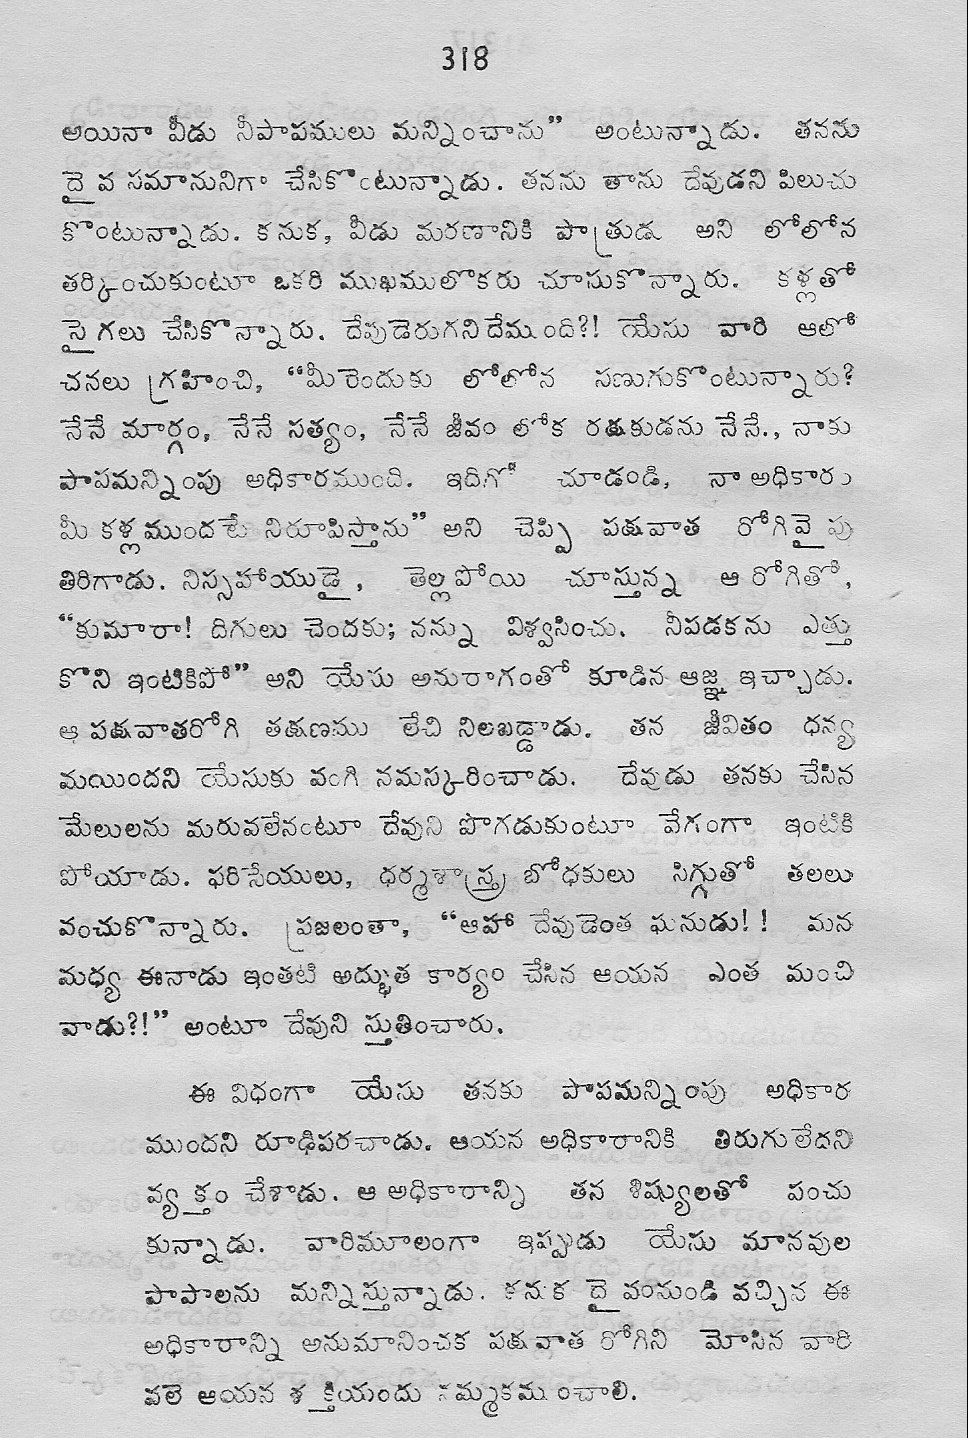 318
అయినా వీడు నీపాపములు మన్నించాను” అంటున్నాడు. తనను
దైవ సమానునిగా చేసికొంటున్నాడు. తనను తాను దేవుడని పిలుచు
కొంటున్నాడు. కనుక, వీడు మరణానికి పాత్రుడు అని లోలోన
తర్కించుకుంటూ ఒకరి ముఖములొకరు చూసుకొన్నారు. కళ్లతో
సైగలు చేసికొన్నారు. దేవుడెరుగనిదేముంది?! యేసు వారి ఆలో
చనలు గ్రహించి, “మీరెందుకు లోలోన సణుగుకొంటున్నారు?
నేనే మార్గం, నేనే సత్యం, నేనే జీవం లోక రక్షకుడను నేనే., నాకు
పాపమన్నింపు అధికారముంది. ఇదిగో చూడండి, నా అధికారం
మీ కళ్లముందటే నిరూపిస్తాను” అని చెప్పి పక్షవాత రోగివైపు
తిరిగాడు. నిస్సహాయుడై, తెల్లపోయి చూస్తున్న ఆ రోగితో,
“కుమారా! దిగులు చెందకు; నన్ను విశ్వసించు. నీపడకను ఎత్తు
కొని ఇంటికిపో” అని యేసు అనురాగంతో కూడిన ఆజ్ఞ ఇచ్చాడు.
ఆ పక్షవాతరోగి తక్షణము లేచి నిలబడ్డాడు. తన జీవితం ధన్య
మయిందని యేసుకు వంగి నమస్కరించాడు. దేవుడు తనకు చేసిన
మేలులను మరువలేనంటూ దేవుని పొగడుకుంటూ వేగంగా ఇంటికి
పోయాడు. ఫరిసేయులు, ధర్మశాస్త్ర బోధకులు సిగ్గుతో తలలు
వంచుకొన్నారు. ప్రజలంతా, “ఆహా దేవుడెంత ఘనుడు!! మన
మధ్య ఈనాడు ఇంతటి అద్భుత కార్యం చేసిన ఆయన ఎంత మంచి
వాడు?!” అంటూ దేవుని స్తుతించారు.
ఈ విధంగా యేసు తనకు పాపమన్నింపు అధికార
ముందని రూఢిపరచాడు. ఆయన అధికారానికి తిరుగులేదని
వ్యక్తం చేశాడు. ఆ అధికారాన్ని తన శిష్యులతో పంచు
కున్నాడు. వారిమూలంగా ఇప్పుడు యేసు మానవుల
పాపాలను మన్నిస్తున్నాడు. కనుక దైవంనుండి వచ్చిన ఈ
అధికారాన్ని అనుమానించక పక్షవాత రోగిని మోసిన వారి
వలె ఆయన శక్తియందు నమ్మకముంచాలి.